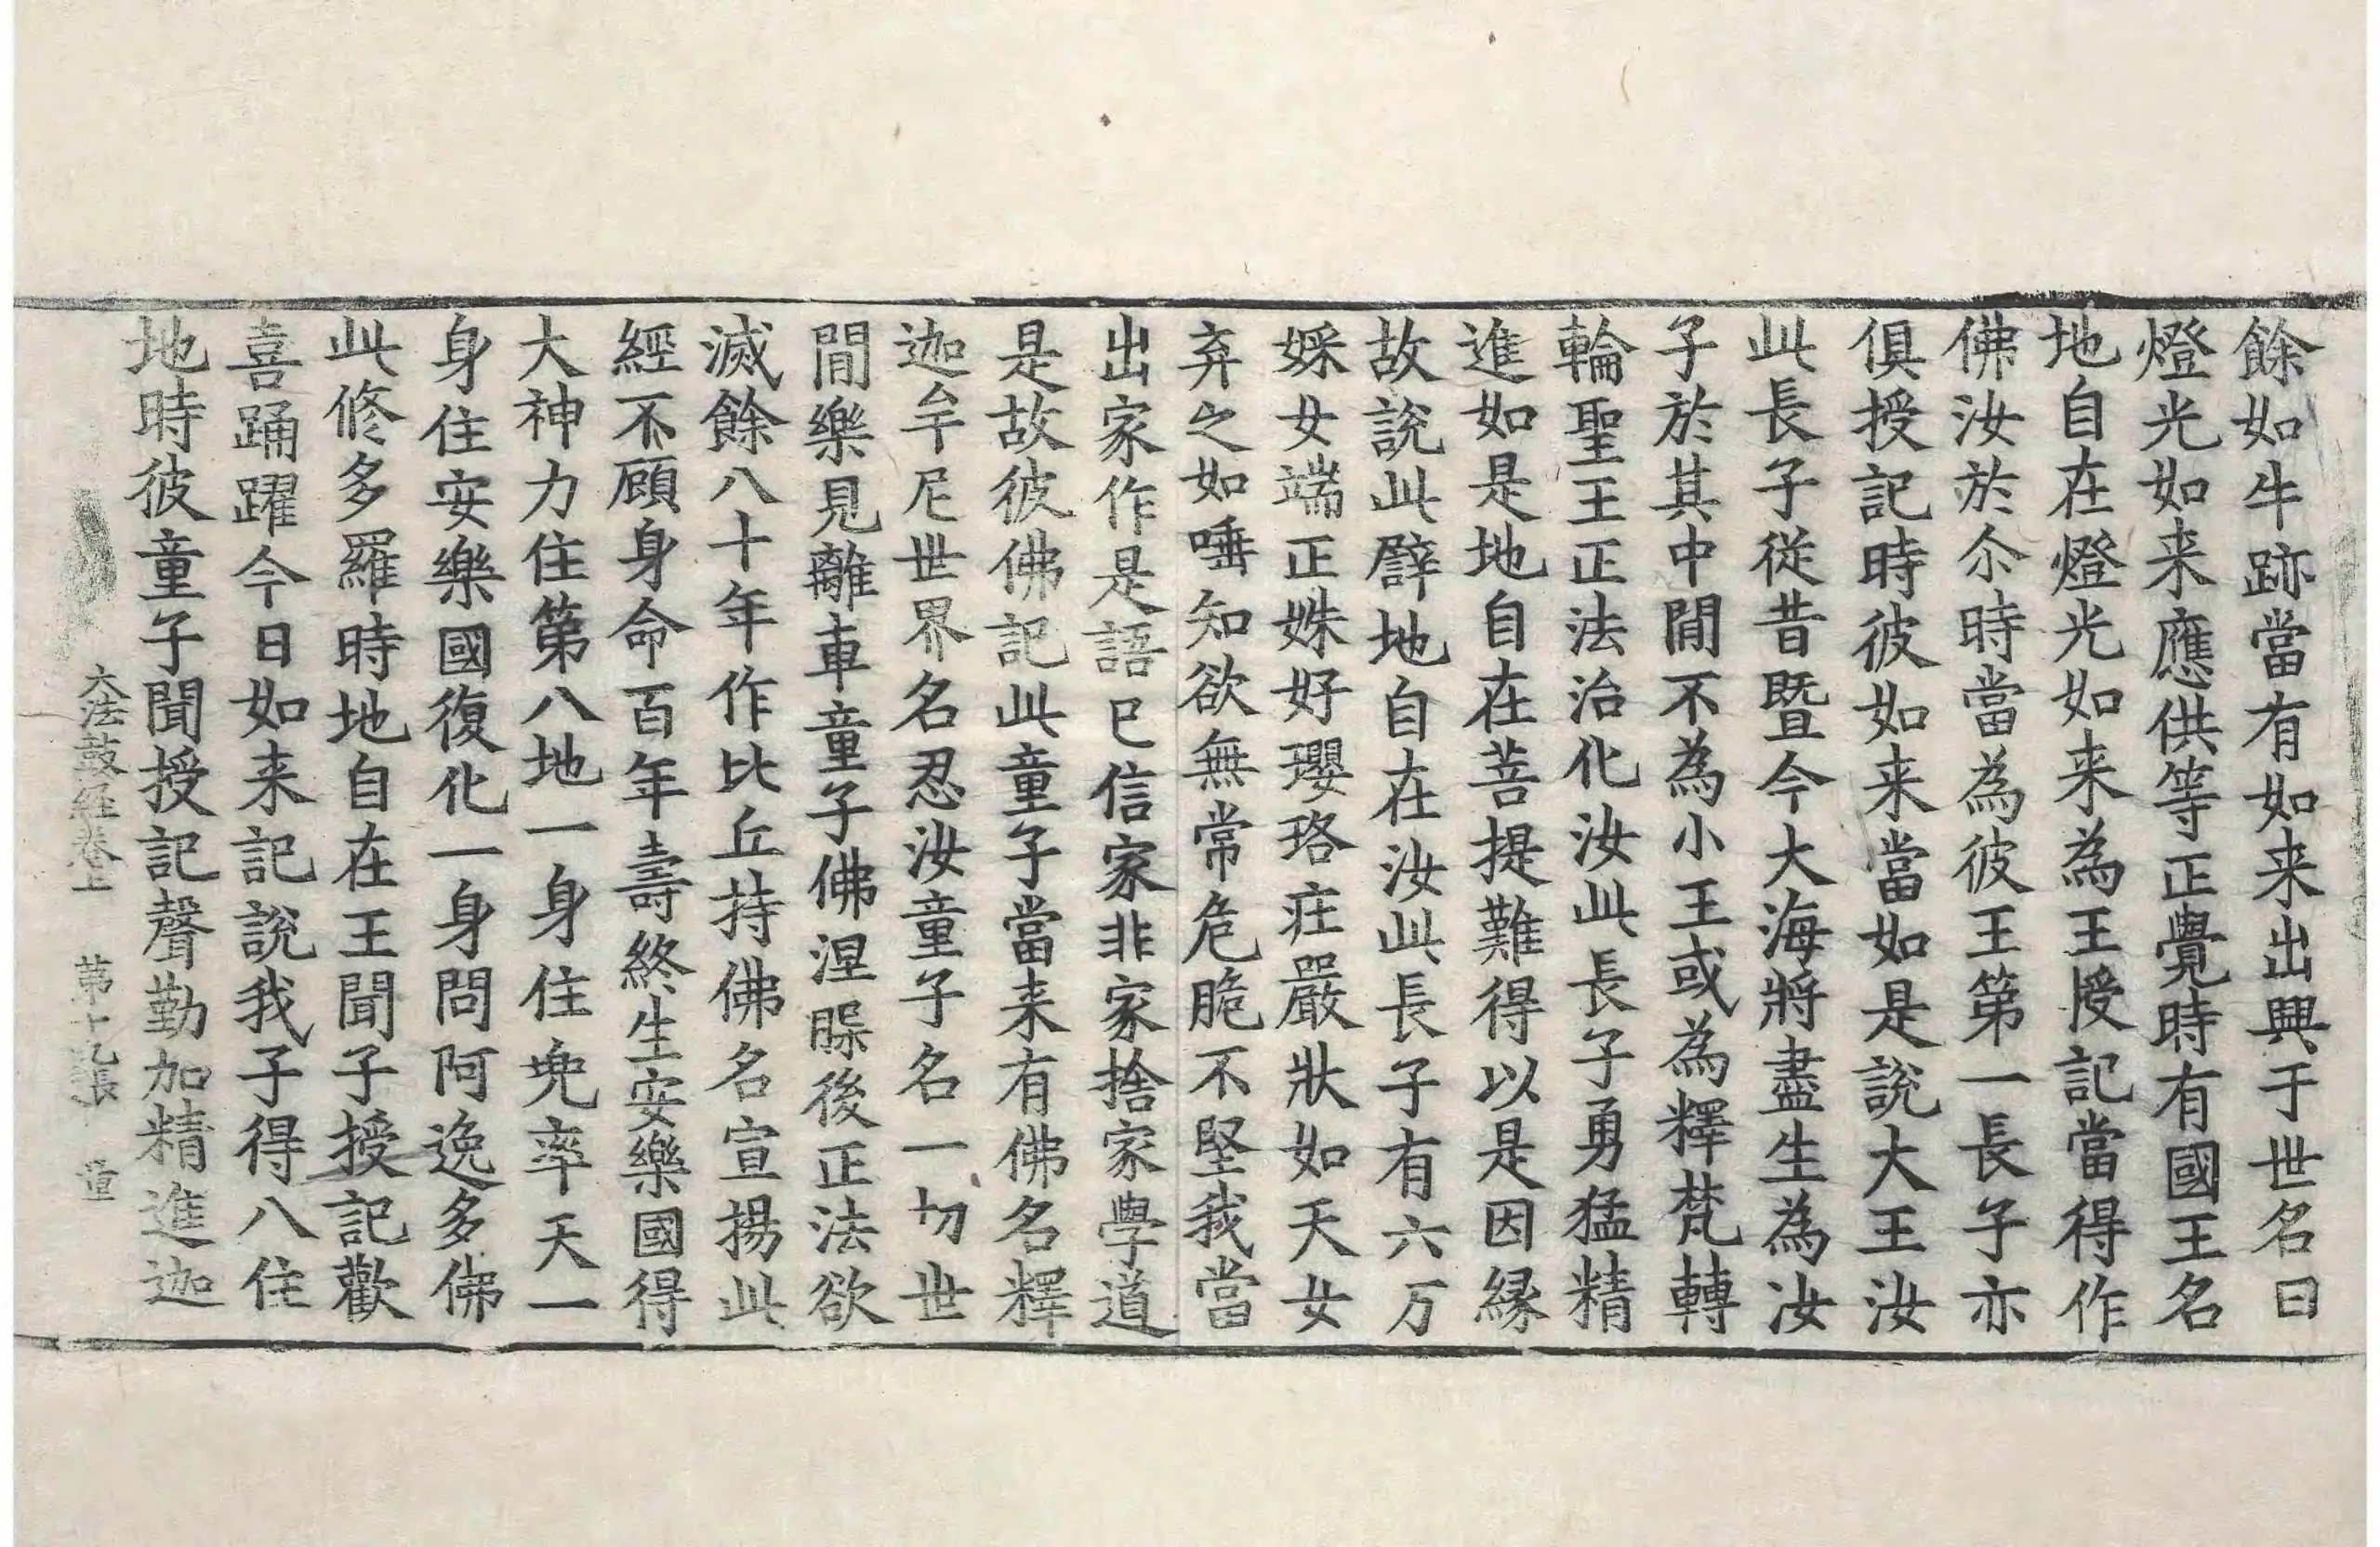 餘如牛跡當有如来出興于世名曰
燈光如来應供等正覺時有國王名
地自在燈光如来為王授記當得作
佛汝於尒時當為彼王第一長子亦
俱授記時彼如来當如是說大王汝
此長子從昔暨今大海將盡生為汝
子於其中閒不為小王或為釋梵轉
輪聖王正法治化汝此長子勇猛精
進如是地自在菩提難得以是因縁
故說此譬地自在汝此長子有六万
婇女端正姝好瓔珞莊嚴狀如天女
弃之如唾知欲無常危脆不堅我當
出家作是語已信家非家捨家學道
是故彼佛記此童子當来有佛名釋
迦牟尼世界名忍汝童子名一切世
閒樂見離車童子佛涅槃後正法欲
滅餘八十年作比丘持佛名宣揚此
經不顧身命百年壽終生安樂國得
大神力住第八地一身住兜率天一
身住安樂國復化一身問阿逸多佛
此修多羅時地自在王聞子授記歡
喜踊躍今日如来記說我子得八住
地時彼童子聞授記聲勤加精進迦
大法鼓經卷上　第十九張　童